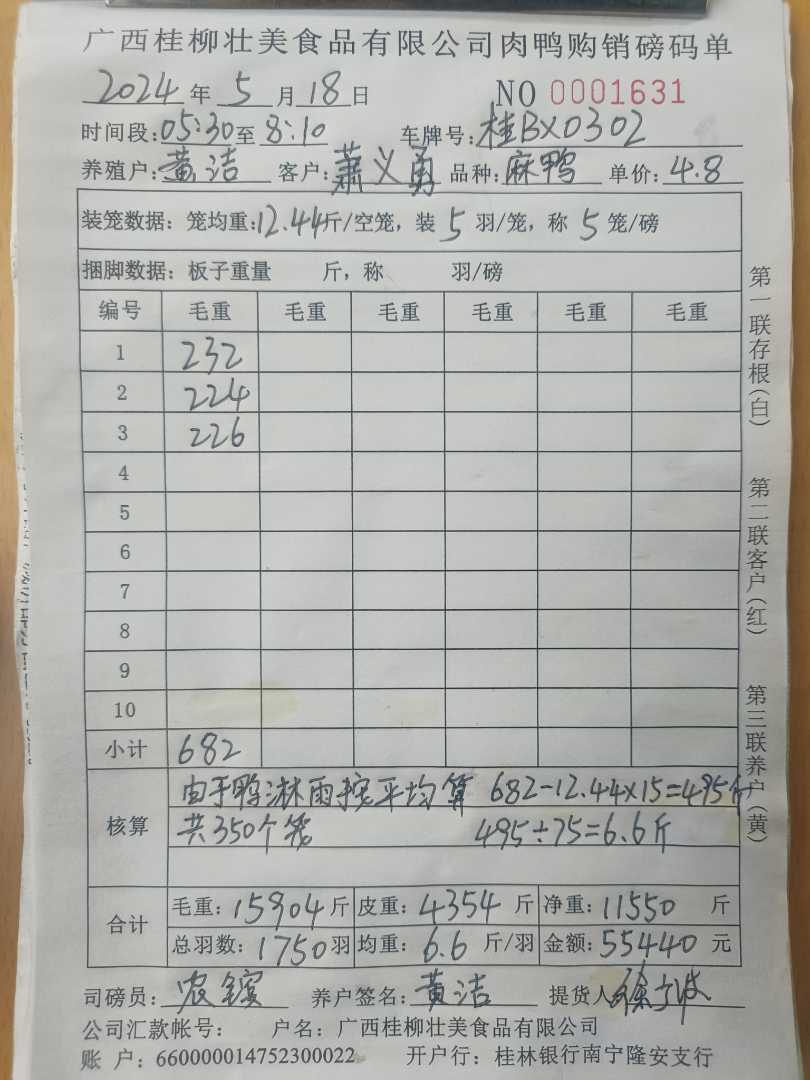 广西桂柳壮美食品有限公司肉鸭购销磅码单
2024年5月18日 NO 0001631
时间段:05:30至8:10 车牌号:桂BX0302
养殖户:黄洁 客户:萧义勇 品种:麻鸭 单价:4.8
装笼数据:笼均重:12.44斤/空笼,装5羽/笼,称5笼/磅
捆脚数据:板子重量 斤,称 羽/磅
编号 毛重 毛重 毛重 毛重 毛重 毛重
1 232
2 224
3 226
4
5
6
7
8
9
10
小计 682
核算 由于鸭淋雨按平均算 682-12.44×15=495斤
共350个笼 495÷75=6.6斤
合计 毛重:15904斤 皮重:4354斤 净重:11550斤
总羽数:1750羽 均重:6.6斤/羽 金额:55440元
司磅员:农 养户签名:黄洁 提货人 徐
公司汇款帐号: 户名:广西桂柳壮美食品有限公司
账 户:660000014752300022 开户行:桂林银行南宁隆安支行
第一联存根(白)
第二联客户(红)
第三联养户(黄)